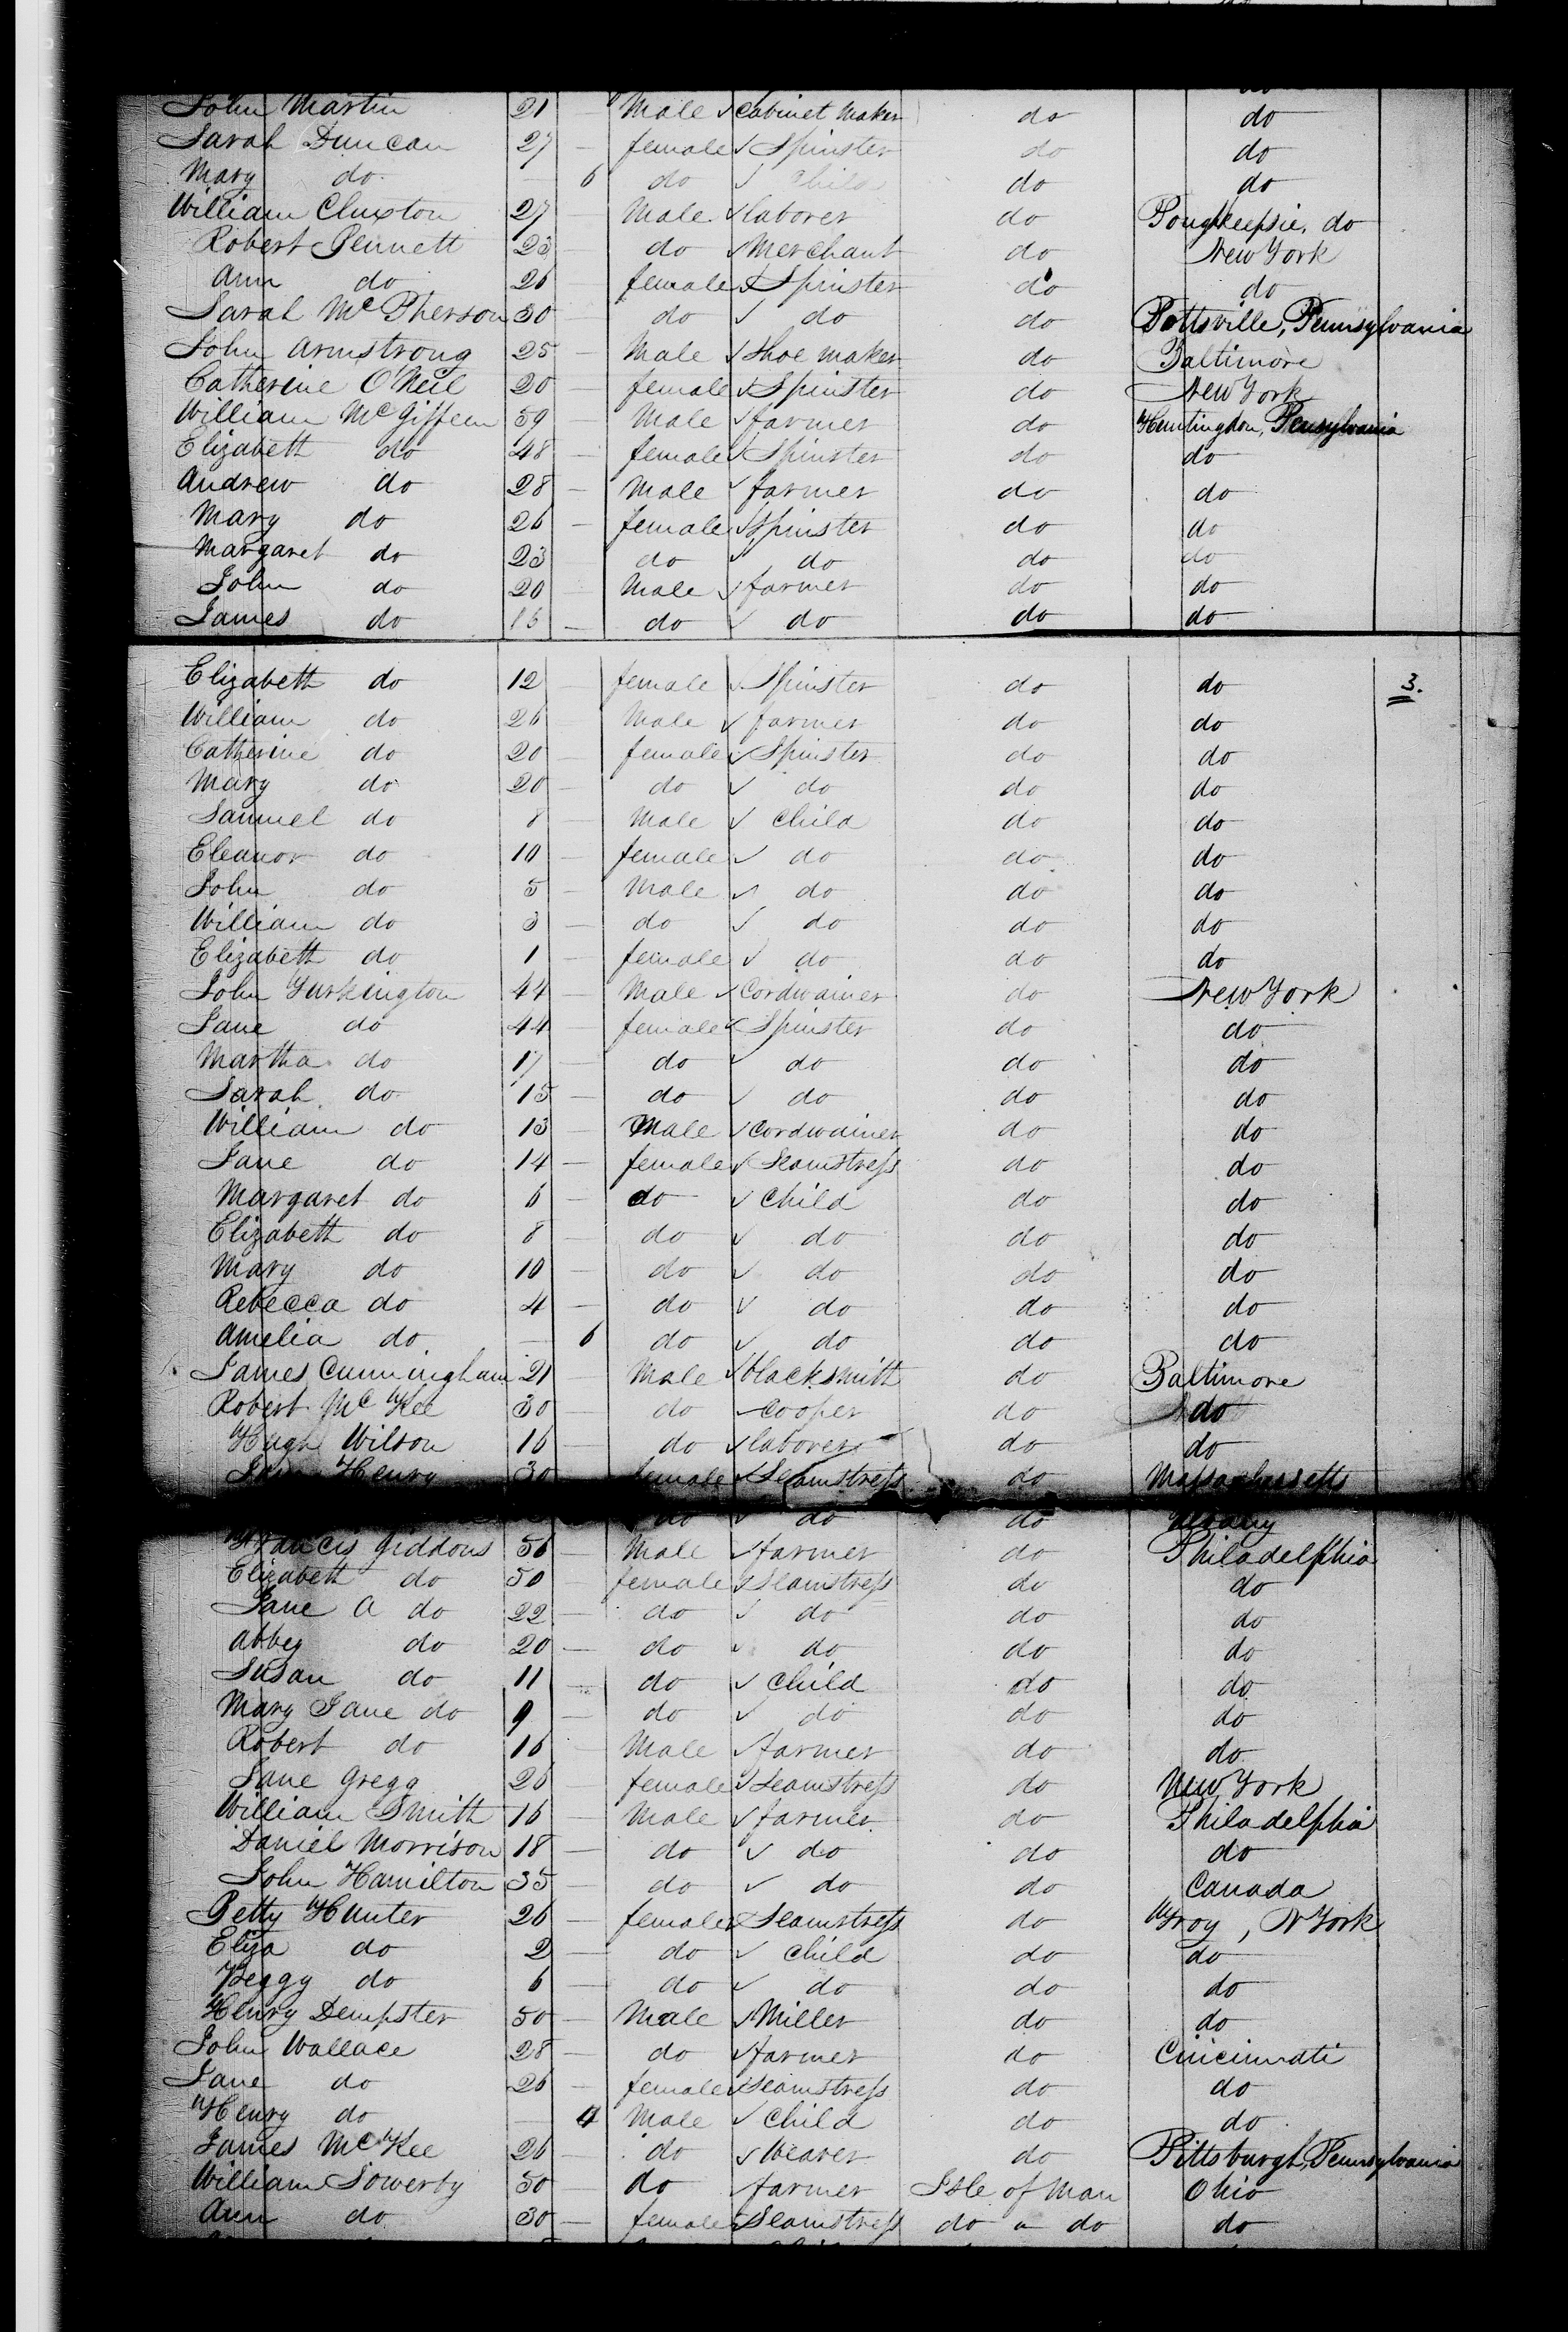 John Martin 21 Male Cabinet Maker do do
Sarah Duncan 27 — female Spinster do do
Mary do — 6 do Child do do
William Cluxton 27 — Male laborer do Poughkeepsie, do
Robert Pennett 23 — do Merchant do New York
Ann do 26 female Spinster do do
Sarah McPherson 30 — do do do Pottsville, Pennsylvania
John Armstrong 25 — Male Shoe maker do Baltimore
Catherine O'Neil 20 — female Spinster do New York
William McGiffern 59 Male farmer do Huntingdon, Pensylvania
Elizabeth do 48 — female Spinster do do
Andrew do 28 — Male farmer do do
Mary do 26 — female Spinster do do
Margaret do 23 — do do do do
John do 20 — Male farmer do do
James do 16 — do do do do
Elizabeth do 12 — female Spinster do do 3.
William do 26 — Male farmer do do
Catherine do 20 — female Spinster do do
Mary do 20 — do do do do
Samuel do 8 — Male Child do do
Eleanor do 10 — female do do do
John do 5 — Male do do do
William do 3 — do do do do
Elizabeth do 1 — female do do do
John Turkington 44 — Male Cordwainer do New York
Jane do 44 — female Spinster do do
Martha do 17 — do do do do
Sarah do 15 — do do do do
William do 13 — Male Cordwainer do do
Jane do 14 — female Seamstress do do
Margaret do 6 — do Child do do
Elizabeth do 8 — do do do do
Mary do 10 — do do do do
Rebecca do 4 — do do do do
Amelia do — 6 do do do do
James Cunningham 21 Male blacksmith do Baltimore
Robert McKee 30 — do Cooper do do
Hugh Wilson 16 — do laborer do do
Henry 30 female Seamstress do Massachussetts
do do do Albany
Francis Giddons 56 — Male farmer do Philadelphia
Elizabeth do 50 — female Seamstress do do
Jane A do 22 — do do do do
Abbey do 20 — do do do do
Susan do 11 — do Child do do
Mary Jane do 9 — do do do do
Robert do 16 — Male farmer do do
Jane Gregg 26 — female Seamstress do New York
William Smith 16 — Male farmer do Philadelphia
Daniel Morrison 18 — do do do do
John Hamilton 35 — do do do Canada
Betty Hunter 26 — female Seamstress do Troy, N York
Eliza do 2 — do Child do do
Peggy do 6 — do do do do
Henry Dempster 50 — Male Miller do do
John Wallace 28 — do farmer do Cincinnati
Jane do 26 — female Seamstress do do
Henry do — 4 Male Child do do
James McKee 26 — do Weaver do Pittsburgh, Pennsylvania
William Sowerby 50 — do farmer Isle of Man Ohio
Ann do 30 — female Seamstress do " do do